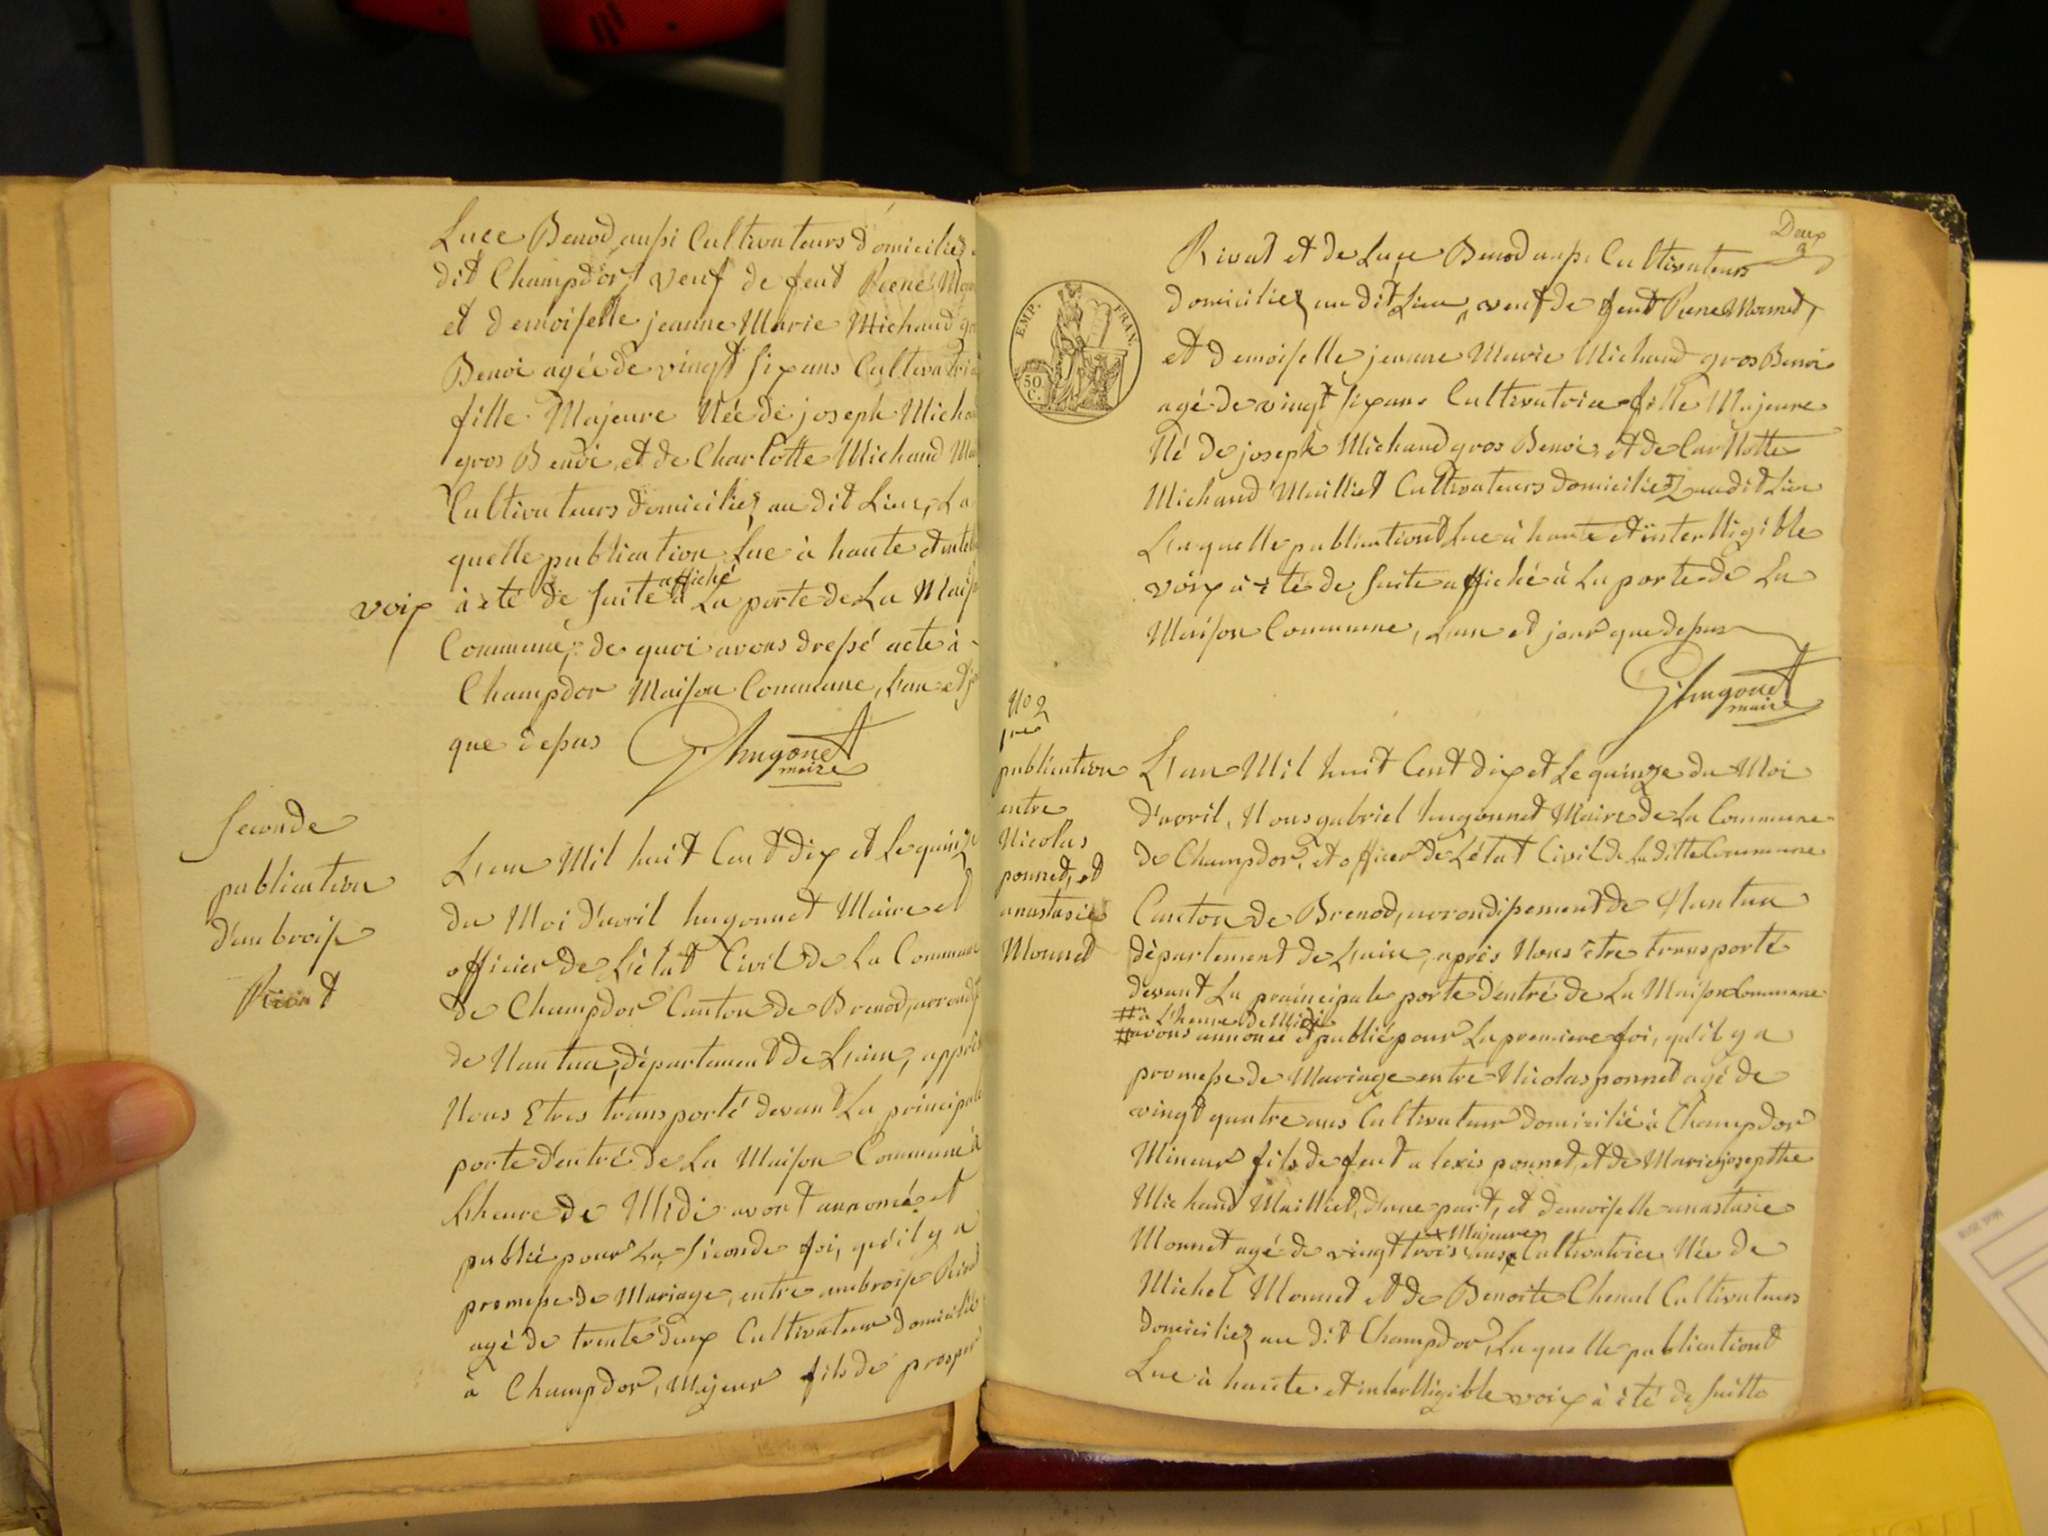 Luce Benod aussi Cultivateurs domiciliez
dit Champdor, veuf de feut Reene
et demoiselle jeanne Marie Michaud
Benoi agée de vingt six ans Cultivatri
fille Majeure Née de joseph Micha
gros Benoi, et de Charlotte Michaud
Cultivateurs domiciliez au dit Lieu, La
quelle publication Lue à haute et
voix à été de suite affiché à La porte de La Mais
Commune, de quoi avons dressé acte à
Champdor Maison Commune, L'an et
que depus Ghugonet
maire
Seconde
publication
d'ambroise
Rivat
L'an Mil huit Cent dix et Le quinze
du Moi d'avril hugonnet Maire et
officier de L'état Civil de La Commune
de Champdor Canton de Brenod, arrondis
de Nantua, département de L'ain, apprès
Nous Etres transporté devant La principale
porte d'entré de La Maison Commune à
L'heure de Midi avont annoncé et
publié pour La Seconde foi, qu'il y a
promesse de Mariage, entre ambroise Rivat
agé de trente deux Cultivateur domicilié
à Champdor, Majeur fils de prosper
Deux
Rivat et de Luce Benod aussi Cultivateurs
domiciliez au dit Lieu, veuf de feut Reene Monnet,
et demoiselle jeanne Marie Michaud gros Benoi
agé de vingt six ans Cultivatrice fille Majeure
Né de joseph Michaud gros Benoi, et de Carllotte
Michaud Mailliet Cultivateurs domiciliez au dit Lieu
Laquelle publicationt Lue à haute et interlligible
voix à été de suite affiché à La porte de La
Maison Commune, L'an et jour que depus
Ghugonet
maire
EMP. FRAN.
50
C.
No 2
publication
entre
Nicolas
ponnet, et
anastasie
Monnet
L'an Mil huit Cent dix et Le quinze du Moi
d'avril, Nous gabriel hugonnet Maire de La Commune
de Champdor, et officier de L'état Civil de La ditte Commune
Canton de Brenod, arrondissement de Nantua
département de L'ain, après Nous être transporté
devant La praincipale porte d'entré de La Maison Commune
# à L'heure de Midi
# avons annoncé et publié pour La premiere foi, qu'il y a
promesse de Mariage entre Nicolas ponnet agé de
vingt quatre ans Cultivateur domicilié à Champdor
Mineur fils de feut alexis ponnet, et de Marie josepthe
Michaud Mailliet, d'une part, et demoiselle anastasie
Monnet agé de vingt trois ans Majeure Cultivatrice Née de
Michel Monnet et de Benoite Chenal Cultivateurs
domiciliez au dit Champdor, Laquelle publicationt
Lue à haute et interlligible voix à été de suitte